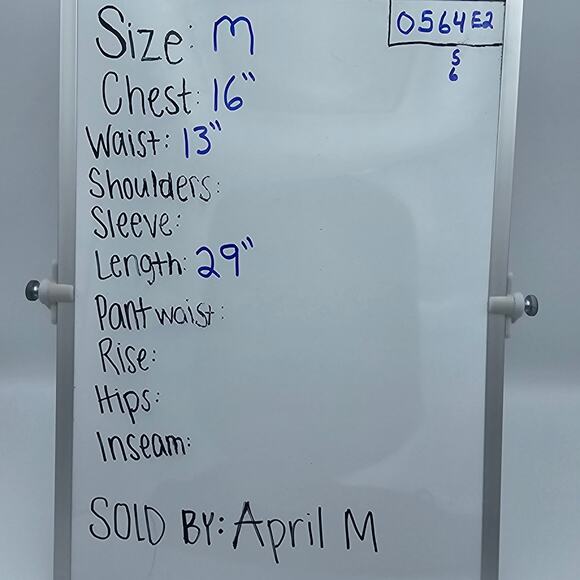 Size: M
0564 E2
5
6
Chest: 16"
Waist: 13"
Shoulders:
Sleeve:
Length: 29"
Pant waist:
Rise:
Hips:
Inseam:
SOLD BY: April M